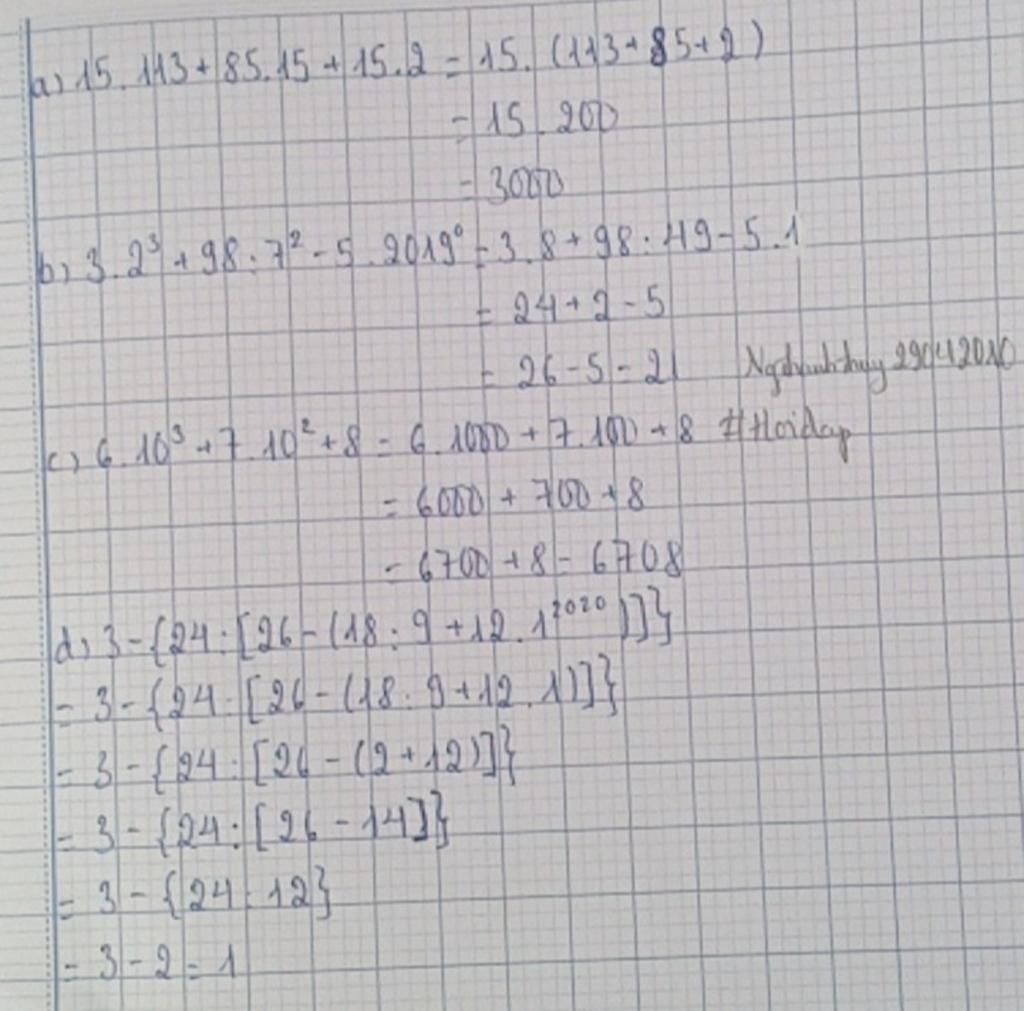 a) 15.113+85.15+15.2=15.(113+85+2)
=15.200
=3000
b) 3.2³+98:7²-5.2019⁰=3.8+98:49-5.1
=24+2-5
=26-5=21 22042010
c) 6.10³+7.10²+8=6.1000+7.100+8 #Hoidap
=6000+700+8
=6700+8=6708
d) 3-{24:[26-(18:9+12.1²⁰²⁰)]}
=3-{24:[26-(18:9+12.1)]}
=3-{24:[26-(2+12)]}
=3-{24:[26-14]}
=3-{24:12}
=3-2=1